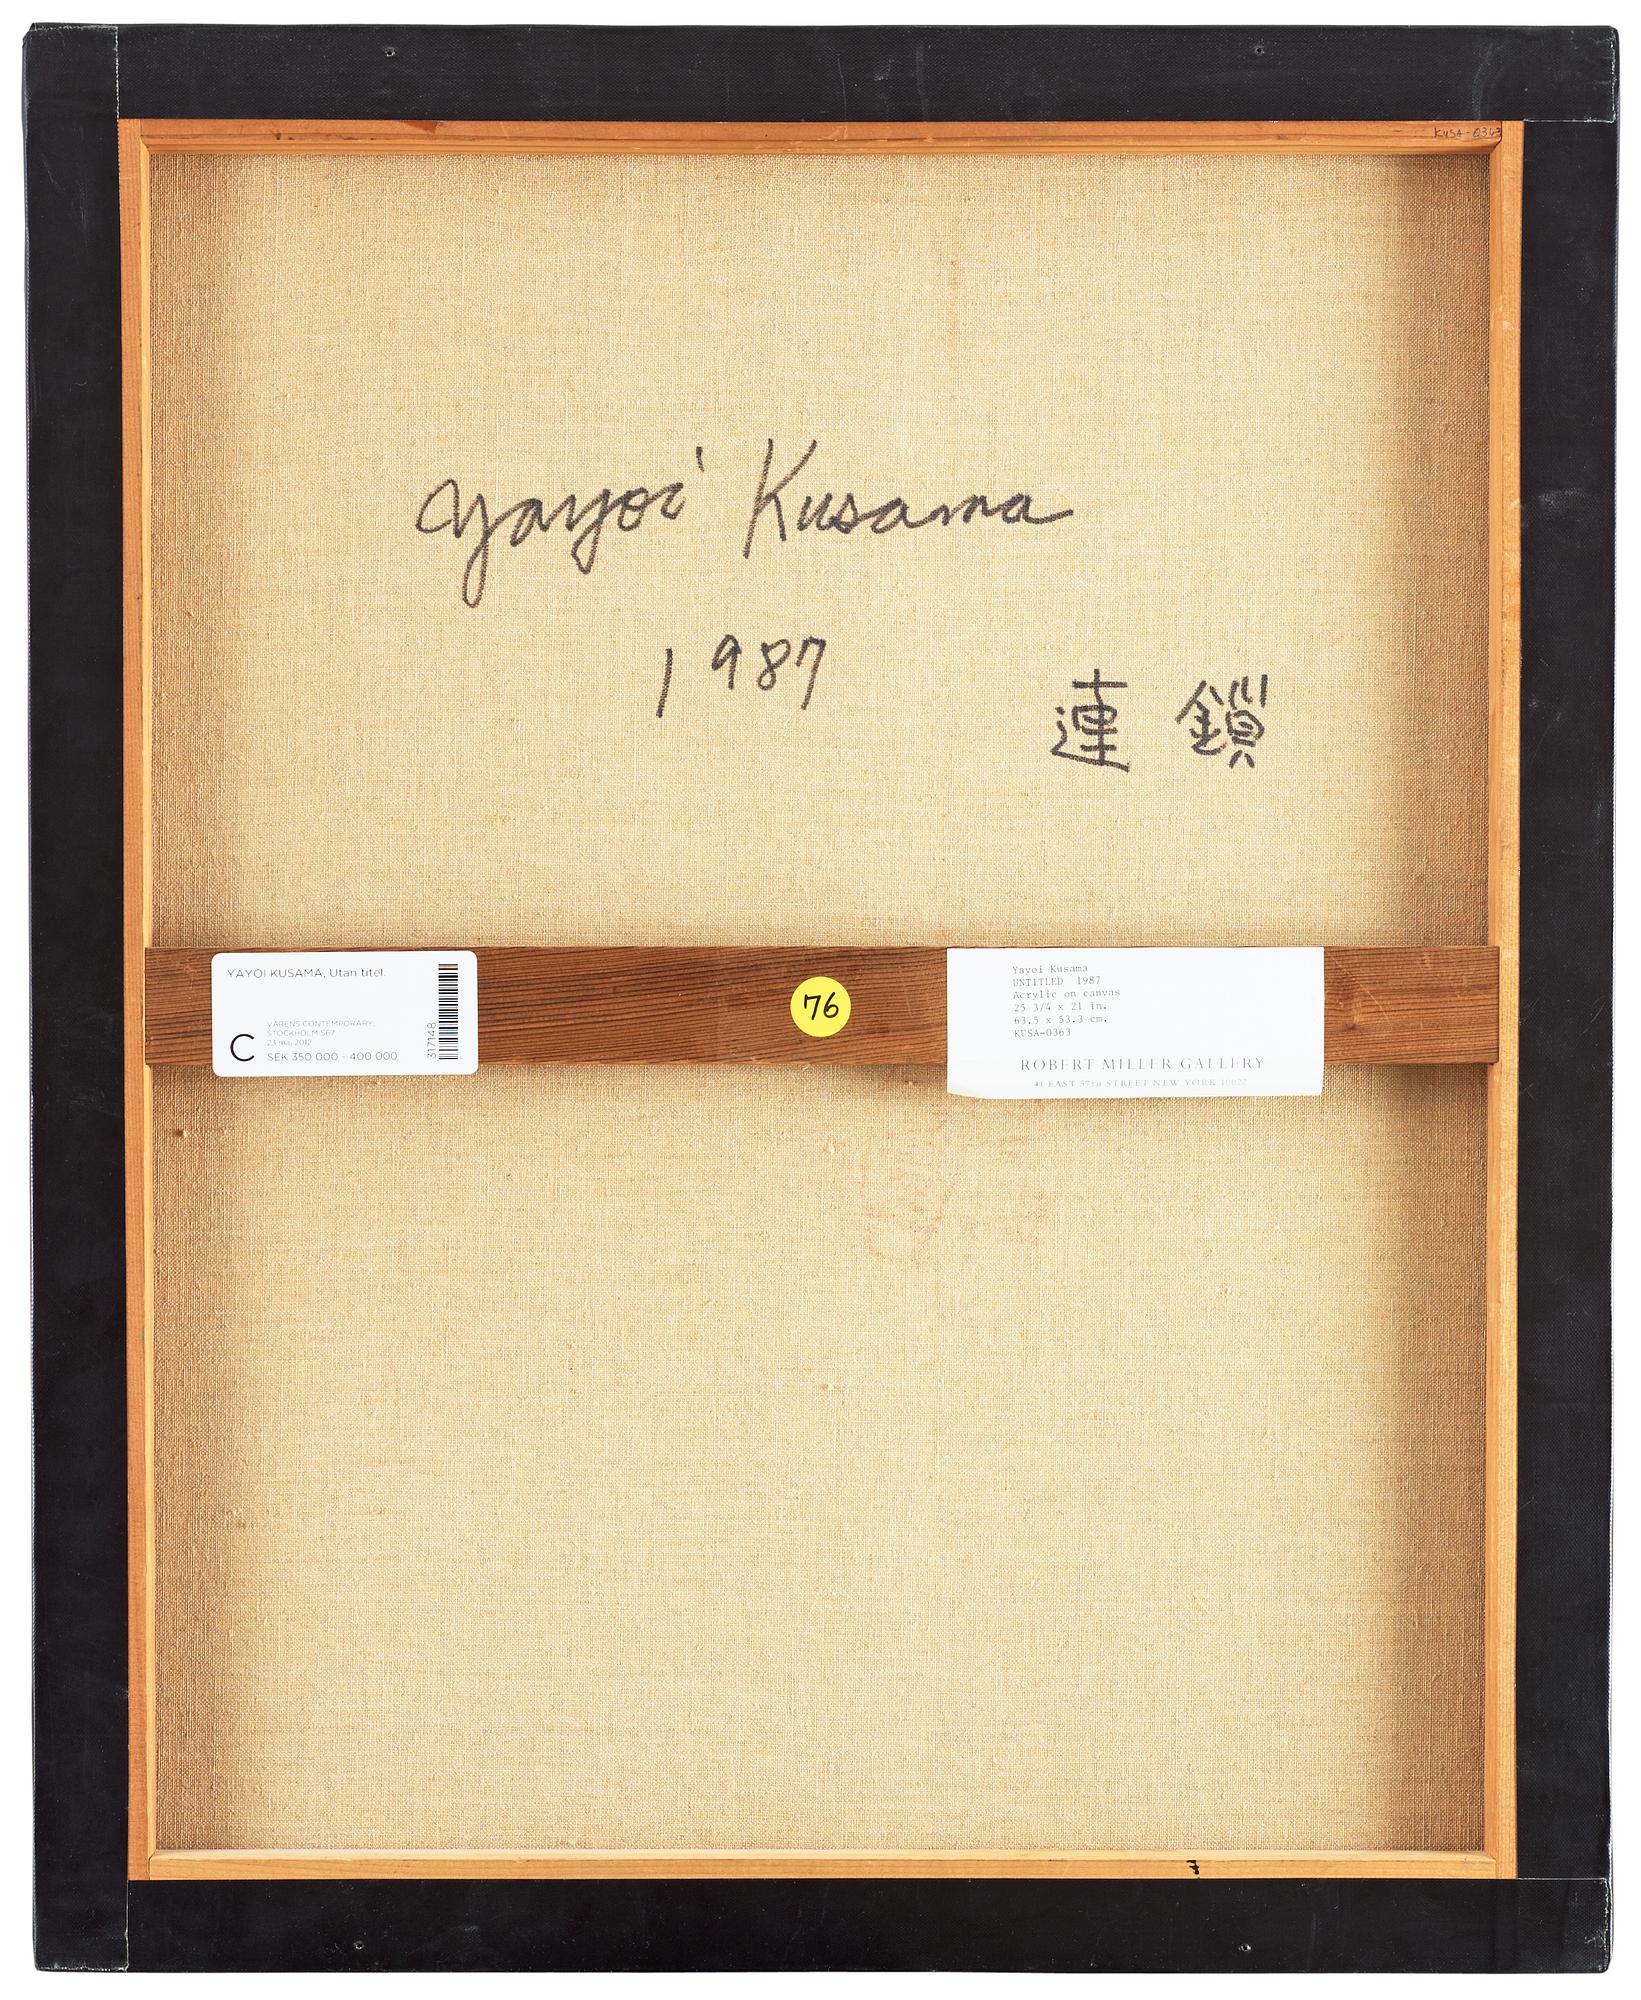 KUSA-0363
Yayoi Kusama
1987
連鎖
YAYOI KUSAMA, Utan titel.
C
VÅRENS CONTEMPORARY,
STOCKHOLM 567
23 maj 2012
SEK 350 000 - 400 000
317148
76
Yayoi Kusama
UNTITLED 1987
Acrylic on canvas
25 3/4 x 21 in.
63.5 x 53.3 cm.
KUSA-0363
ROBERT MILLER GALLERY
41 EAST 57TH STREET NEW YORK 10022